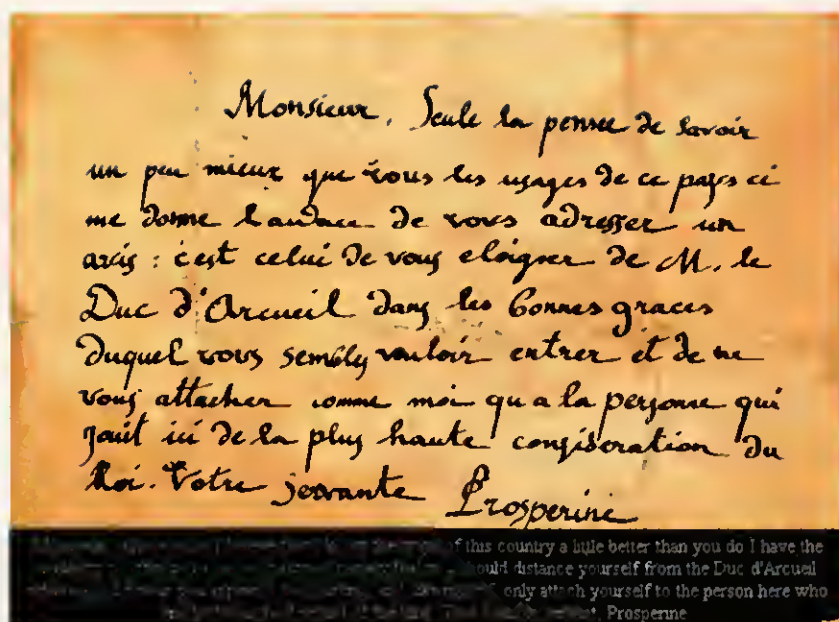 Monsieur, Seule la pensee de savoir
un peu mieux que vous les usages de ce pays ci
me donne l'audace de vous adresser un
avis : c'est celui de vous eloigner de M. le
Duc d'Arcueil dans les bonnes graces
duquel vous sembly vouloir entrer et de ne
vous attacher comme moi qu a la personne qui
jouit ici de la plus haute consideration du
Roi. Votre servante Prosperine
of this country a little better than you do I have the
should distance yourself from the Duc d'Arcueil
only attach yourself to the person here who
Prosperine